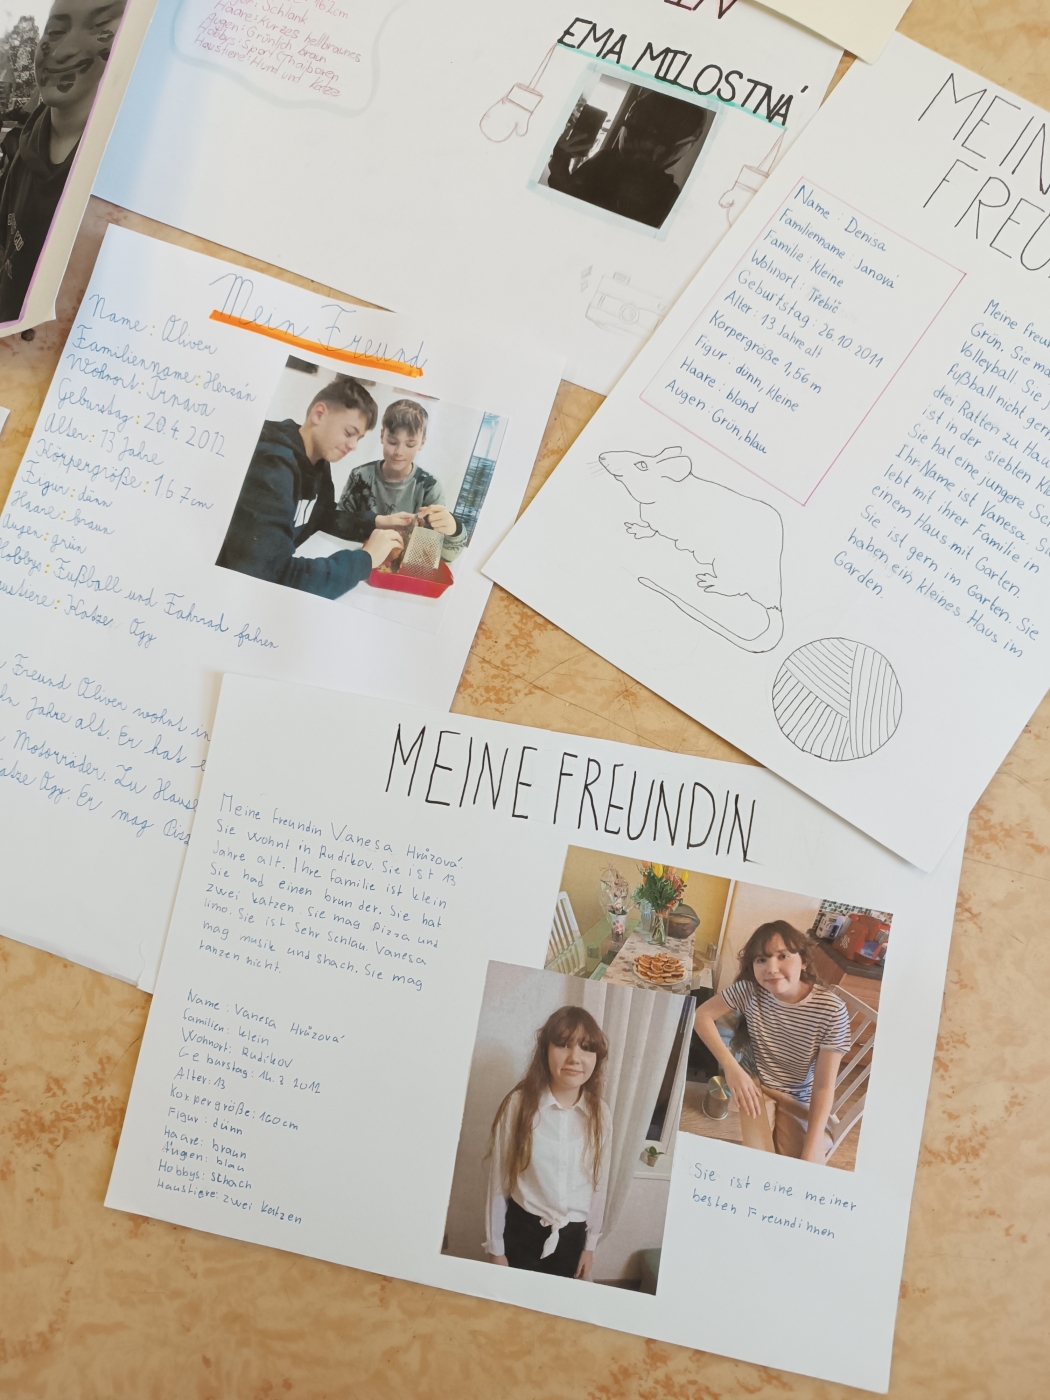 162cm
Schlank
Haare: Kurzes hellbraunes
Augen: Grünlich braun
Hobbys: Sport (Thaiboxen
Haustiere: Hund und
Katze
EMA MILOSTNÁ
Mein Freund
Name: Oliver
Familienname: Herzán
Wohnort: Trnava
Geburstag: 20.4. 2012
Alter: 13 Jahre
Körpergröße: 167cm
Figur: dünn
Haare: braun
Augen: grün
Hobbys: Fußball und Fahrrad fahren
Haustiere: Katze Ogy
Freund Oliver wohnt in
Jahre alt. Er hat
Motorräder. Zu Hause
Katze Ogy. Er mag
MEIN
FREU
Name: Denisa
Familienname Janová
Familie: Kleine
Wohnort: Třebíč
Geburtstag: 26.10 2011
Alter: 13 Jahre alt
Korpergröße 1,56m
Figur: dünn, kleine
Haare: blond
Augen: Grün, blau
Meine freun
Grün. Sie ma
Volleyball. Sie
fußball nicht gern
drei Ratten zu Hau
ist in der siebten Kl
Sie hat eine jüngere Sch
Ihr Name ist Vanesa. Si
lebt mit ihrer Familie in
einem Haus mit Garten.
Sie ist gern im Garten. Sie
haben ein kleines Haus im
Garden.
MEINE FREUNDIN
Meine freundin Vanesa Hrůzová
Sie wohnt in Rudíkov. Sie ist 13
Jahre alt. Ihre familie ist klein
Sie had einen brunder. Sie hat
zwei katzen. Sie mag pizza und
limo. Sie ist sehr schlau. Vanesa
mag musik und shach. Sie mag
tanzen nicht.
Name: Vanesa Hrůzová
familien: klein
Wohnort: Rudíkov
Geburstag: 14. 3 2012
Alter: 13
Korpergröße: 160cm
Figur: dünn
Haare: braun
Augen: blau
Hobbys: schach
Haustiere: zwei katzen
Sie ist eine meiner
besten Freundinnen